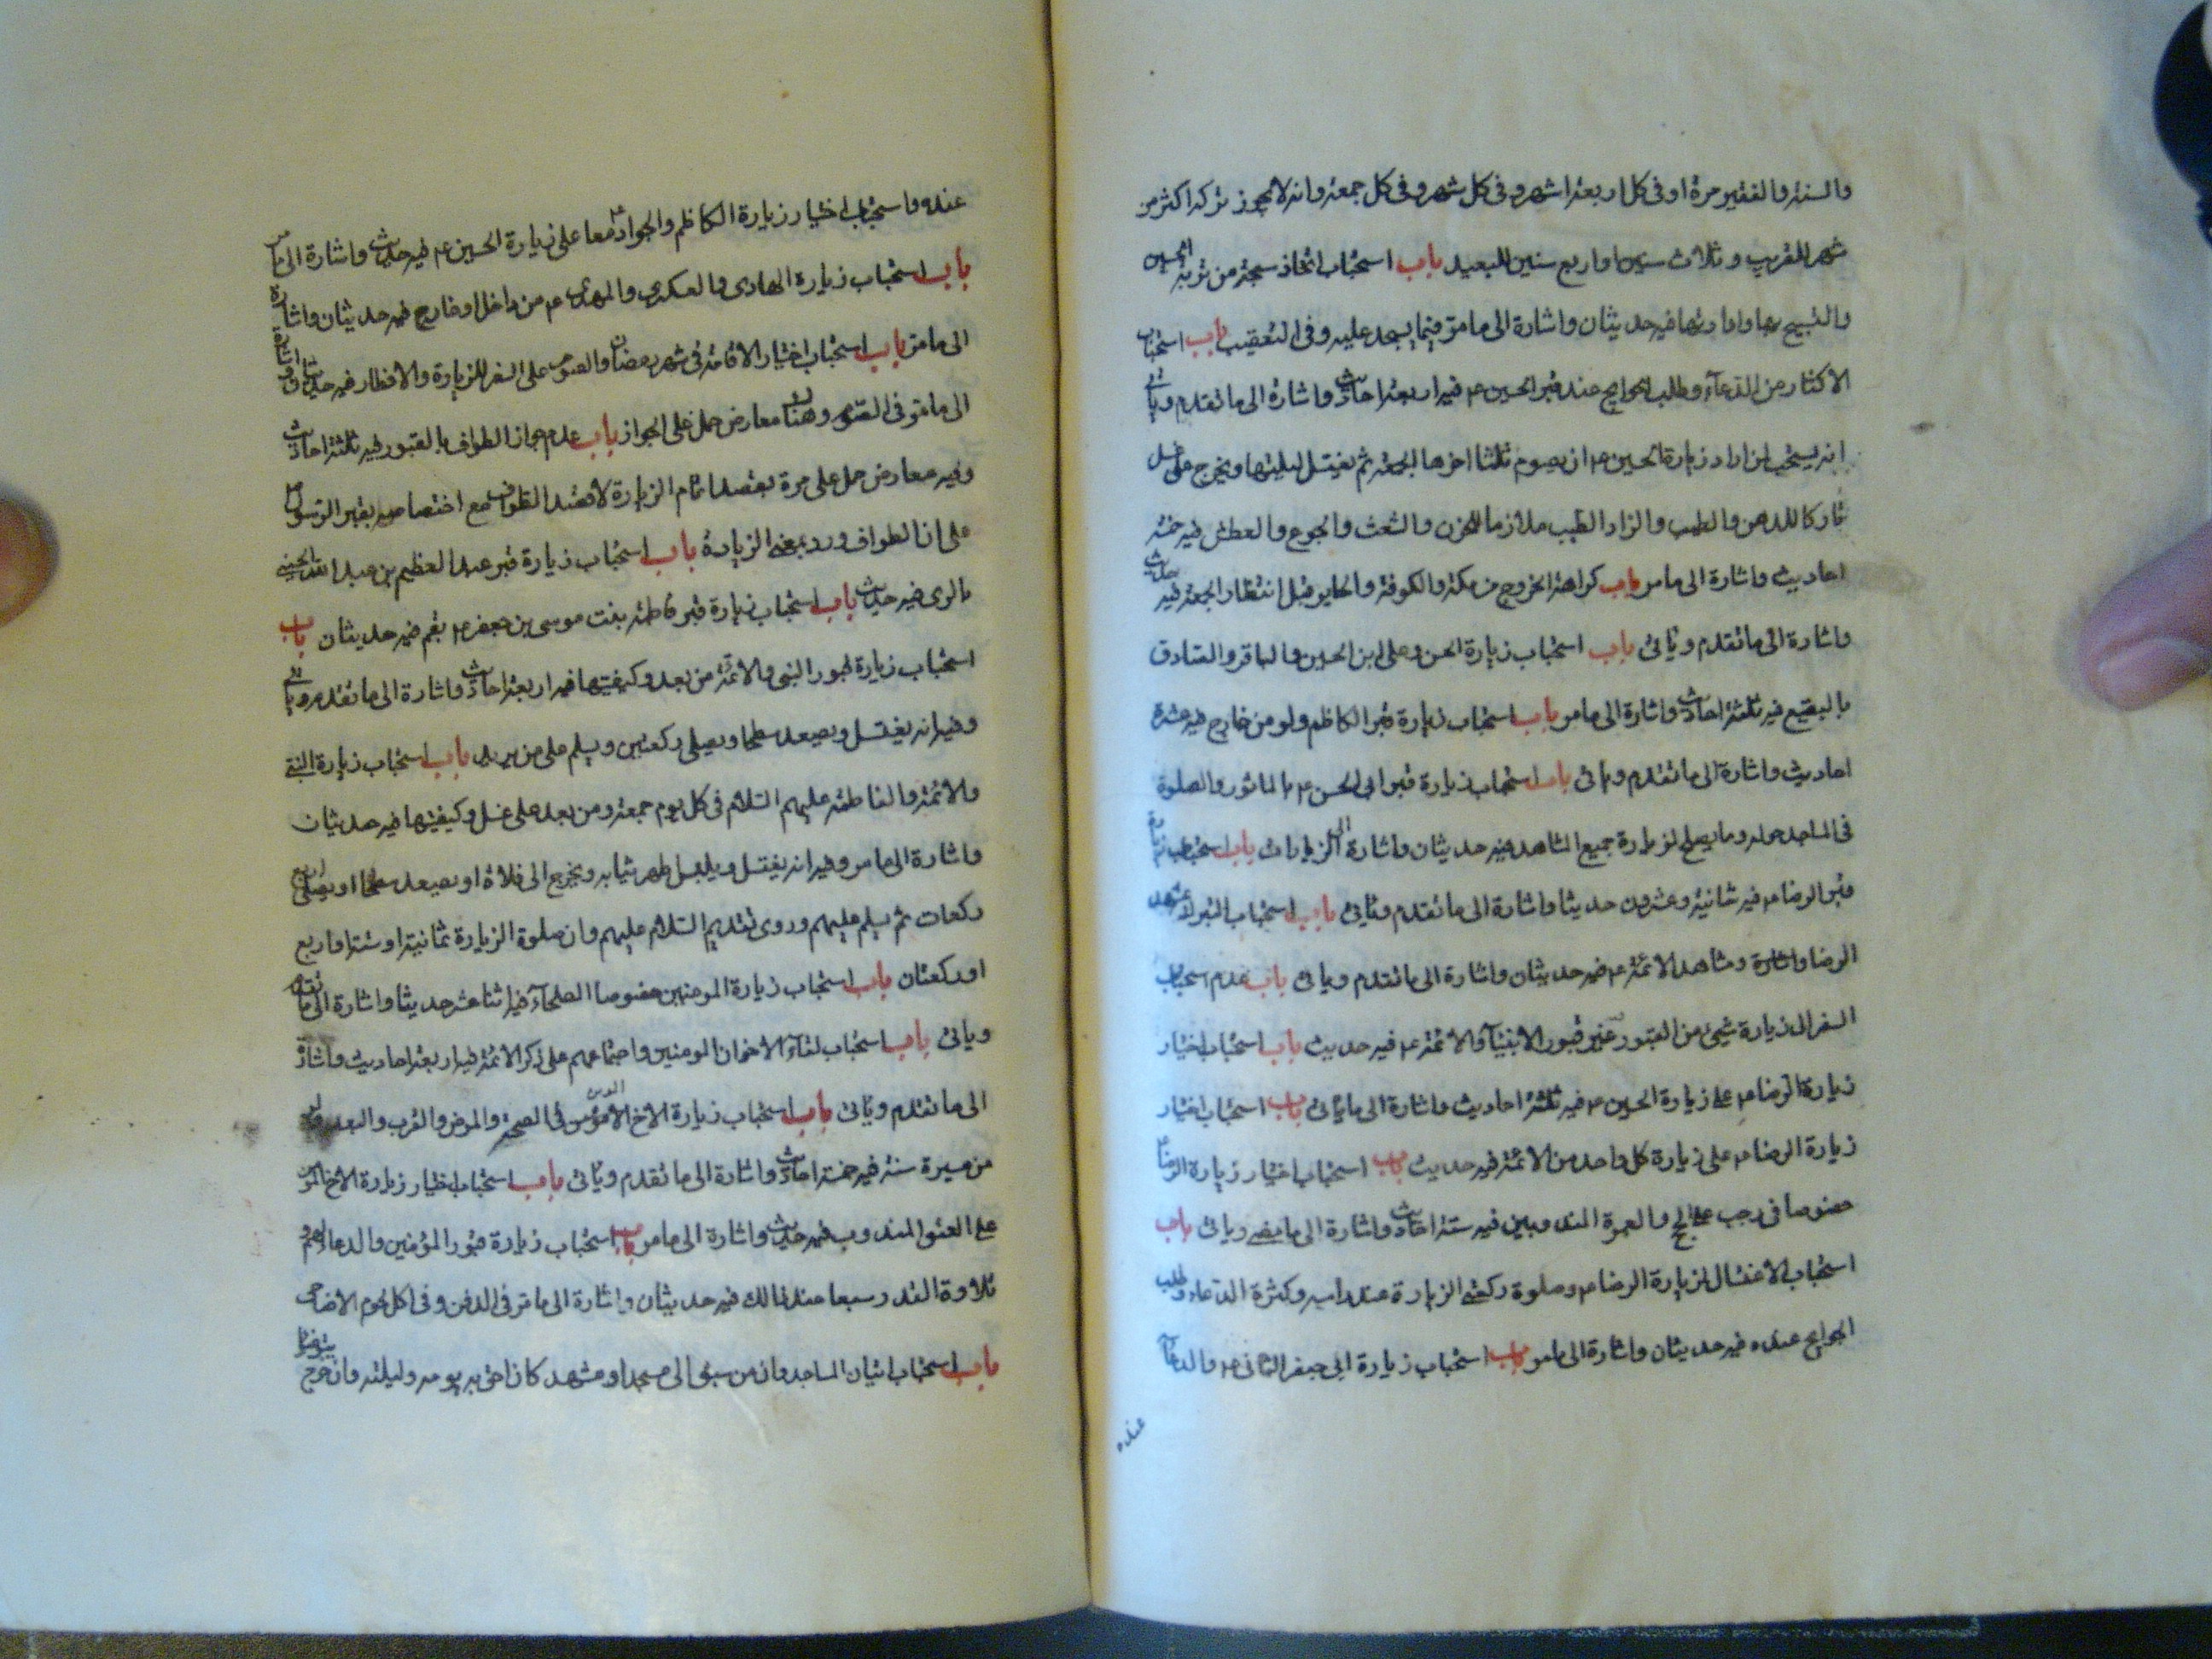 والسنة والفقير مرة او فى كل اربعة اشهر و فى كل شهر و فى كل جمعة وانه لا يجوز تركه اكثر من
شهر للقريب و ثلاث سنين او اربع سنين للبعيد باب استحباب اتخاذ سبحة من تربة الحسين
والتسبيح بها وادارتها فيه حديثان واشارة الى ما مر فيما يسجد عليه و فى التعقيب باب استحباب
الاكثار من الدعآء وطلب الحوايج عند قبر الحسين ع فيه اربعة احاديث واشارة الى ما تقدم وياتى
انه يستحب لمن اراد زيارة الحسين ع ان يصوم ثلثا اخرها الجمعة ثم يغتسل ليلتها ويخرج على غسل
تاركا للدهن والطيب والزاد الطيب ملازما للحزن والشعث والجوع والعطش فيه خمسة
احاديث واشارة الى ما مر باب كراهة الخروج من مكة والكوفة والحاير قبل انتظار الجمعة فيه حديث
واشارة الى ما تقدم وياتى باب استحباب زيارة الحسن وعلى ابن الحسين والباقر والصادق
بالبقيع فيه ثلثة احاديث واشارة الى ما مر باب استحباب زيارة قبر الكاظم ولو من خارج فيه عشرة
احاديث واشارة الى ما تقدم وياتى باب استحباب زيارة قبر ابى الحسن ع بالماثور والصلوة
فى المساجد حوله وما يصلح لزيارة جميع المشاهد فيه حديثان واشارة الى الزيارات باب استحباب زيارة
قبر الرضا ع فيه ثمانية وعشرون حديثا واشارة الى ما تقدم وياتى باب استحباب التبرك بمشهد
الرضا واشارة ومشاهد الائمة ع فيه حديثان واشارة الى ما تقدم وياتى باب عدم استحباب
السفر الى زيارة شيئ من القبور غير قبور الانبيآء والائمة ع فيه حديث باب استحباب اختيار
زيارة الرضا ع على زيارة الحسين ع فيه ثلثة احاديث واشارة الى ما ياتى باب استحباب اختيار
زيارة الرضا ع على زيارة كل واحد من الائمة فيه حديث باب استحباب اختيار زيارة الرضا
خصوصا فى رجب على الحج والعمرة المندوبين فيه ستة احاديث واشارة الى ما مضى وياتى باب
استحباب الاغتسال لزيارة الرضا ع وصلوة ركعتى الزيارة عند راسه وكثرة الدعاء وطلب
الحوايج عنده فيه حديثان واشارة الى ما مر باب استحباب زيارة ابى جعفر الثانى ع والدعآء
عنده
عنده واستحباب اختيار زيارة الكاظم والجواد ع معا على زيارة الحسين ع فيه حديث واشارة الى ما مر
باب استحباب زيارة الهادى والعسكرى والمهدى ع من داخل او خارج فيه حديثان واشارة
الى ما مر باب استحباب اختيار الاقامة فى شهر رمضان والصوم على السفر للزيارة والافطار فيه حديثان واشارة
الى ما مر فى الصوم وهنا معارض حمل على الجواز باب عدم جواز الطواف بالقبور فيه ثلثة احاديث
وفيه معارض حمل على مرة بقصد اتمام الزيارة لا بقصد الطواف مع اختصاصه بقبر الرسول
على ان الطواف ورد بمعنى الزيارة باب استحباب زيارة قبر عبد العظيم بن عبد الله الحسنى
بالرى فيه حديث باب استحباب زيارة قبر فاطمة بنت موسى بن جعفر ع بقم فيه حديثان باب
استحباب زيارة قبور النبى والائمة من بعد وكيفيتها فيه اربعة احاديث واشارة الى ما تقدم وياتى
وفيه انه يغتسل ويصعد سطحا ويصلى ركعتين ويسلم على من يريد باب استحباب زيارة النبى
والائمة والفاطمة عليهم السلام فى كل يوم جمعة ومن بعد على غسل وكيفيتها فيه حديثان
واشارة الى ما مر وفيه انه يغتسل ويلبس اطهر ثيابه ويخرج الى فلاة او يصعد سطحا او يصلى اربع
ركعات ثم يسلم عليهم وروى تقديم السلام عليهم وان صلوة الزيارة ثمانية او ستة او اربع
او ركعتان باب استحباب زيارة المومنين خصوصا الصلحآء فيه اثنا عشر حديثا واشارة الى ما تقدم
وياتى باب استحباب لقآء الاخوان المومنين واجتماعهم على ذكر الائمة فيه اربعة احاديث واشارة
الى ما تقدم وياتى باب استحباب زيارة الاخ المؤمن فى الصحة والمرض والقرب والبعد ولو
من مسيرة سنة فيه خمسة احاديث واشارة الى ما تقدم وياتى باب استحباب اختيار زيارة الاخ المؤمن
على العتق المندوب فيه حديث واشارة الى ما مر باب استحباب زيارة قبور المؤمنين والدعاء لهم و
تلاوة القدر سبعا عند ذالك فيه حديثان واشارة الى ما مر فى الدفن و فى اكل لحوم الاضاحى
باب استحباب اتيان المساجد وان من سبق الى مسجد او مشهد كان احق به يومه وليلته وان خرج يتوضا